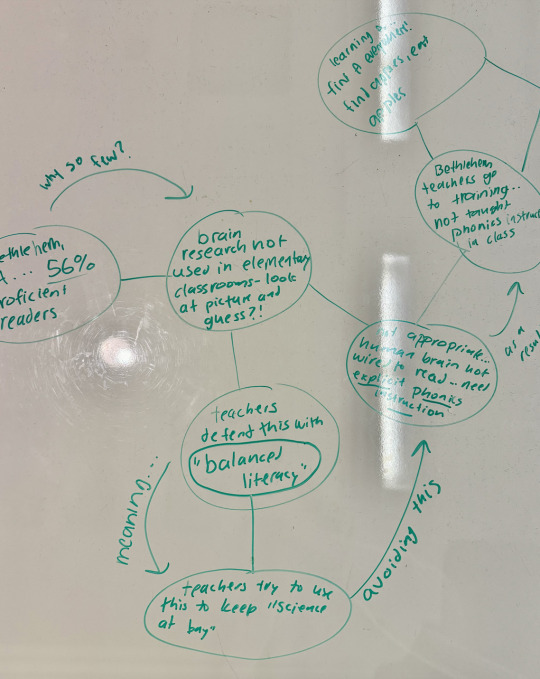 why so few?
ethlehem,
... 56%
roficient
readers
brain
research not
used in elementary
classrooms - look
at picture and
guess?!
teachers
defend this with
"balanced
literacy"
meaning...
teachers try to use
this to keep "science
at bay"
avoiding this
appropriate...
human brain not
wired to read... need
explicit phonics
instruction
as a
resul
Bethlehem
teachers go
to training...
not taught
phonics instruct
in class
learning
find everywhere!
find apples, eat
apples